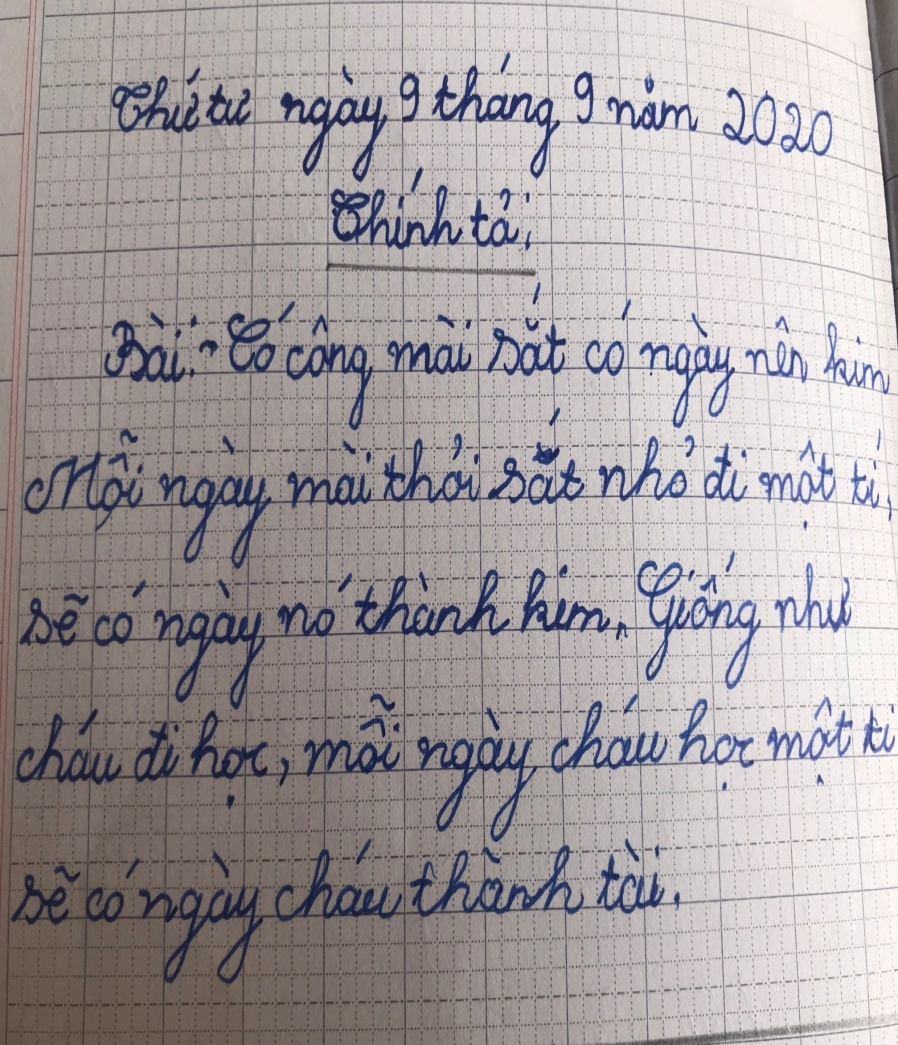 Thứ tư ngày 9 tháng 9 năm 2020
Chính tả:
Bài: Có công mài sắt có ngày nên kim
Mỗi ngày mài thỏi sắt nhỏ đi một tí,
sẽ có ngày nó thành kim. Giống như
cháu đi học, mỗi ngày cháu học một tí
sẽ có ngày cháu thành tài.